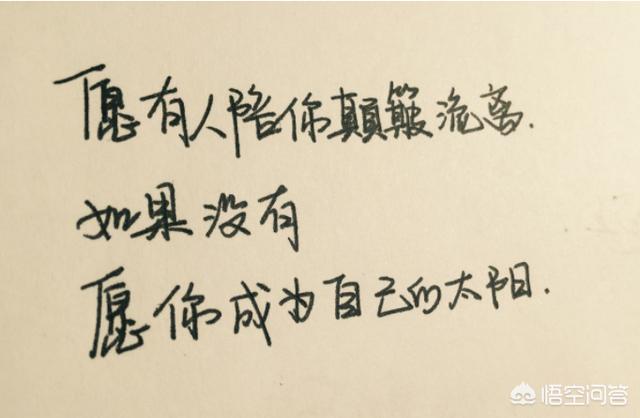 愿有人陪你颠簸流离.
如果没有
愿你成为自己的太阳.
悟空问答